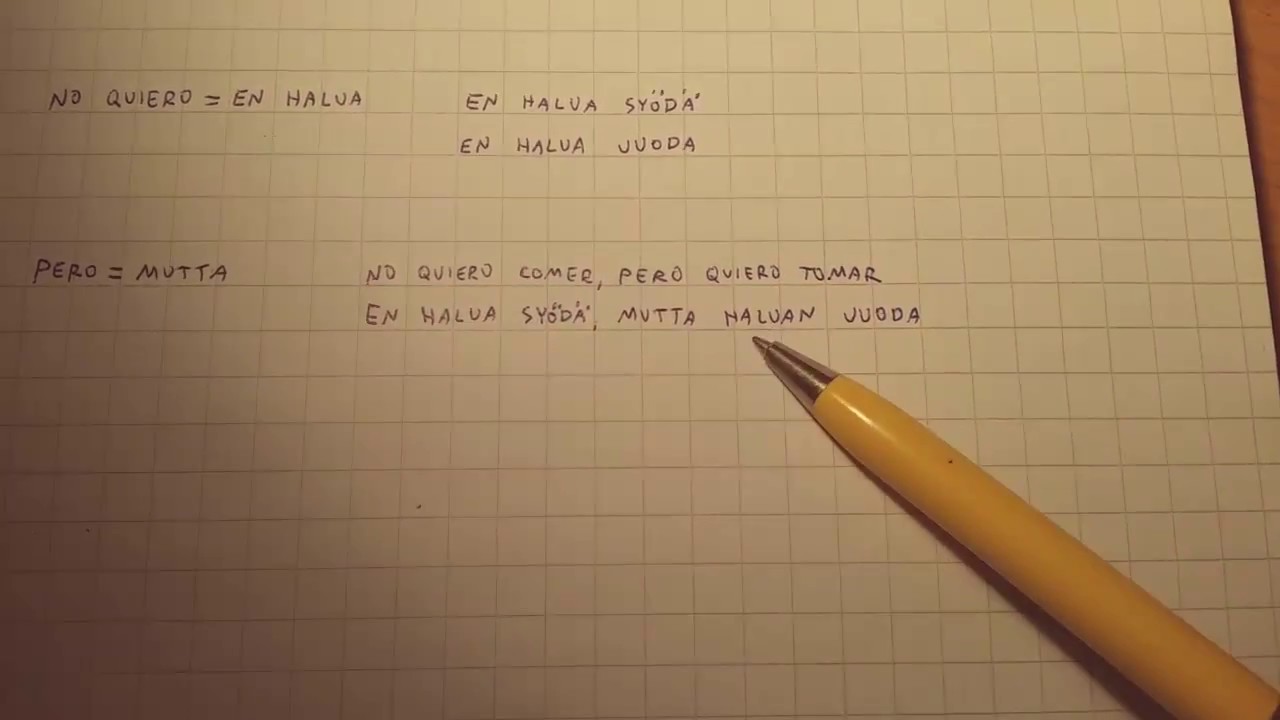 NO QUIERO = EN HALUA EN HALUA SYÖDÄ
EN HALUA JUODA
PERO = MUTTA NO QUIERO COMER, PERO QUIERO TOMAR
EN HALUA SYÖDÄ, MUTTA HALUAN JUODA